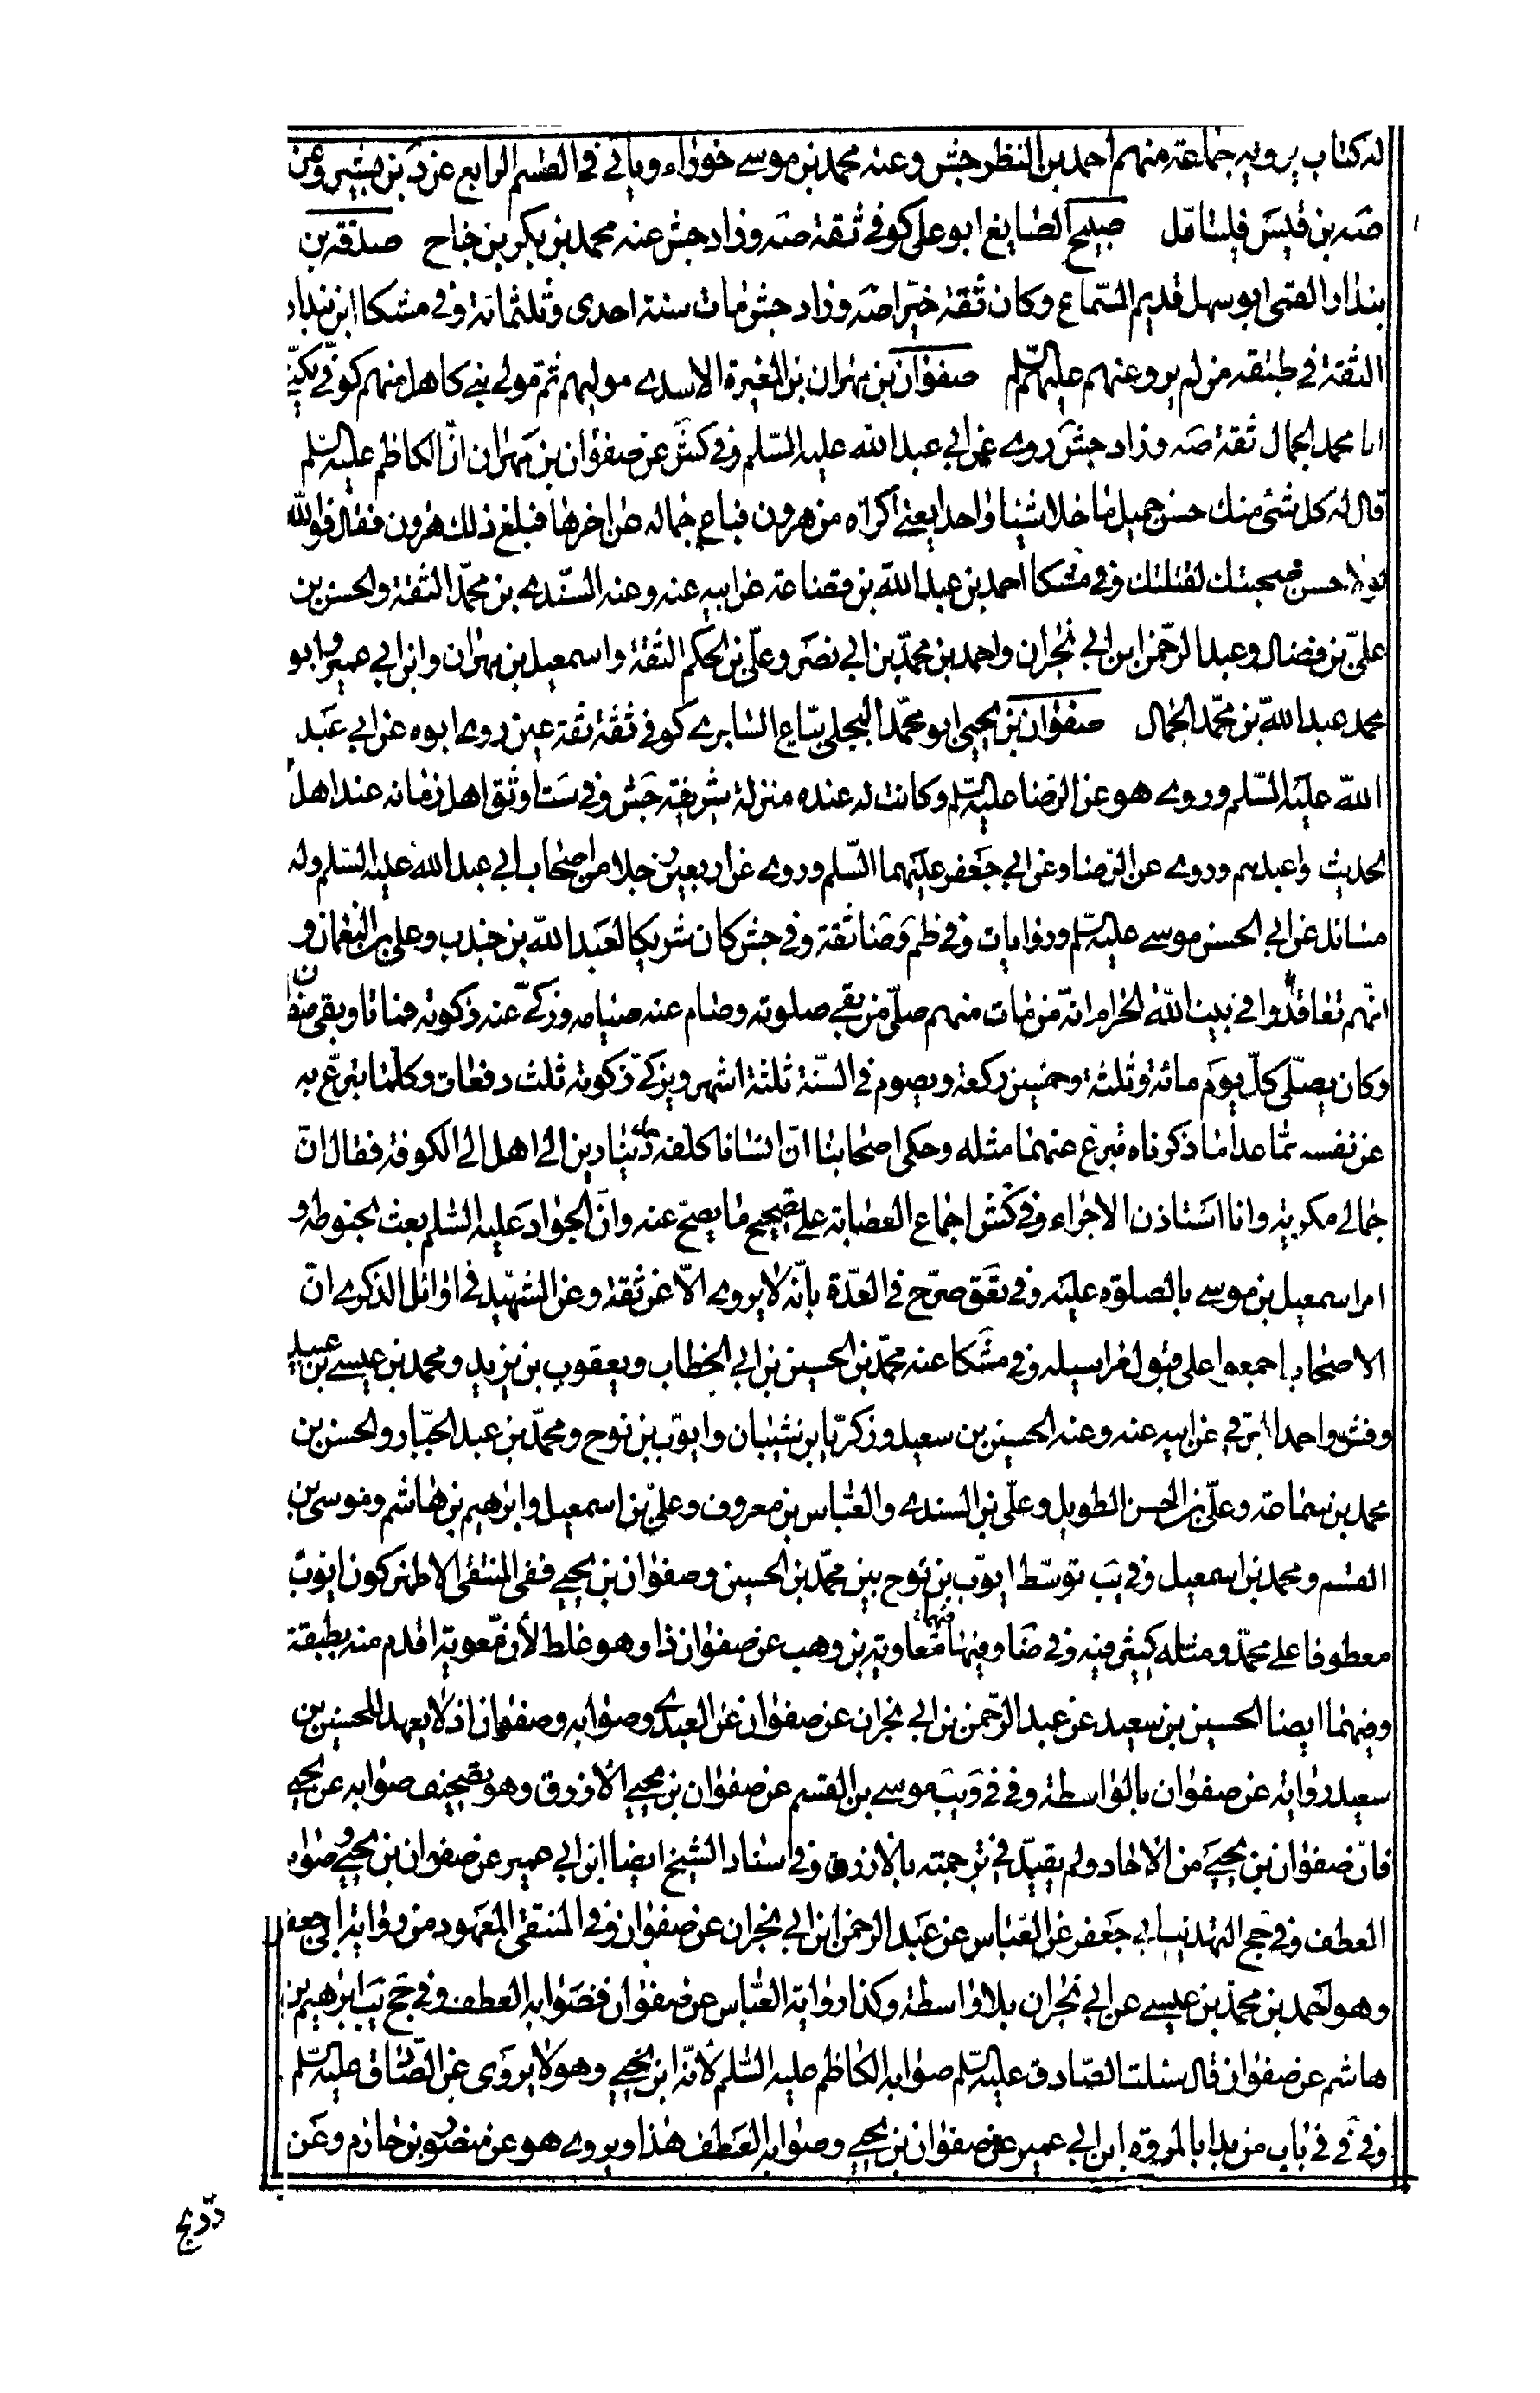 له كتاب يرويه جماعة منهم احمد بن النظر جش وعنه محمد بن موسى خوراء وياتى فى القسم الرابع عن د بن بشير وعن
ضه بن قيس فليتامّل صبيح الصايغ ابو على كوفى ثقة صه وزاد جش عنه محمد بن بكر بن جناح صدقة بن
بندار القمى ابو سهل قديم السّماع وكان ثقة خيّرا صه وزاد جش مات سنة احدى وثلثمائة وفى مشكا ابن بندار
الثقة فى طبقة من لم يرو عنهم عليهم السّلم صفوان بن مهران بن المغيرة الاسدى موليهم ثمّ مولى بنى كاهل منهم كوفى يكنّى
ابا محمد الجمال ثقة صه وزاد جش روى عن ابى عبد الله عليه السّلم وفى كش عن صفوان بن مهران انّ الكاظم عليه السّلم
قال له كل شئ منك حسن جميل ما خلا شيئا واحدا يعنى اكراه من هرون فباع جماله عن اخرها فبلغ ذلك هرون فقال فوالله
لولا حسن صحبتك لقتلتك وفى مشكا احمد بن عبد الله بن قضاعة عن ابيه عنه وعنه السّندى بن محمّد الثقة والحسن بن
علىّ بن فضال وعبد الرّحمن ابن ابى نجران واحمد بن محمّد بن ابى نصر وعلىّ بن الحكم الثقة واسمعيل بن مهران وابن ابى عمير وابو
محمد عبد الله بن محمّد الجمال صفوان بن يحيى ابو محمّد البجلى بيّاع السّابرى كوفى ثقة ثقة عين روى ابوه عن ابى عبد
الله عليه السّلم وروى هو عن الرّضا عليه السّلم وكانت له عنده منزلة شريفة جش وفى ست اوثق اهل زمانه عند اهل
الحديث واعبدهم وروى عن الرّضا وعن ابى جعفر عليهما السّلم وروى عن اربعين رجلا من اصحاب ابى عبد الله عليه السّلم وله
مسائل عن ابى الحسن موسى عليه السّلم وروايات وفى ظم وضا ثقة وفى جش كان شريكا لعبد الله بن جندب وعلى بن النعمان و
انّهم تعاقدوا فى بيت الله الحرام انّه من مات منهم صلّى من بقى صلوته وصام عنه صيامه وزكّى عنه زكوته فماتا وبقى صفوان
وكان يصلّى كلّ يوم مائة وثلثة وخمسين ركعة ويصوم فى السّنة ثلثة اشهر ويزكّى زكوته ثلث دفعات وكلّما يتبرّع به
عن نفسه ممّا عدا ما ذكرناه تبرّع عنهما مثله وحكى اصحابنا انّ انسانا كلفه حمل دينارين الى اهل الى الكوفة فقال انّ
جمالى مكرية وانا استاذن الاجراء وفى كش اجماع العصابة على تصحيح ما يصحّ عنه وانّ الجواد عليه السّلم بعث بحنوطه و
امر اسمعيل بن موسى بالصلوة عليه وفى تعق صرّح فى العدّة بانّه لا يروى الاّ عن ثقة وعن الشهيد فى اوائل الذكرى انّ
الاصحاب اجمعوا على قبول مراسيله وفى مشكا عنه محمّد بن الحسين بن ابى الخطاب ويعقوب بن يزيد ومحمد بن عيسى بن عبيد
وفق واحمد البرقى عن ابيه عنه وعنه الحسين بن سعيد وزكريّا بن شيبان وايوب بن نوح ومحمّد بن عبد الجبّار والحسن بن
محمد بن سماعة وعلىّ بن الحسن الطويل وعلىّ بن السندى والعبّاس بن معروف وعلىّ بن اسمعيل وابرهيم بن هاشم وموسى بن
القسم ومحمد بن اسمعيل وفى يب توسّط ايوّب بن نوح بين محمّد بن الحسين وصفوان بن يحيى ففى المنتقى الاظهر كون ايّوب
معطوفا على محمّد ومثله كثير فيه وفى ضا وفيهما معاوية بن وهب عن صفوان ذا وهو غلط لأن معوية اقدم منه بطبقة
وفيهما ايضا الحسين بن سعيد عن عبد الرّحمن بن ابى نجران عن صفوان عن العبدى وصوابه وصفوان اذ لا يعهد للحسين بن
سعيد رواية عن صفوان بالواسطة وفى فى ويب موسى بن القسم عن صفوان بن يحيى الازرق وهو تصحيف صوابه عن يحيى
فانّ صفوان بن يحيى من الاحاد ولم يقيّد فى ترجمته بالازرق وفى اسناد الشيخ ايضا ابن ابى عمير عن صفوان بن يحيى وصوابه
العطف وفى حج التهذيب ابى جعفر عن العبّاس عن عبد الرحمن ابن ابى نجران عن صفوان وفى المنتقى المعهود من رواية ابى جعفر
وهو احمد بن محمّد بن عيسى عن ابى نجران بلا واسطة وكذا رواية العبّاس عن صفوان فصوابه العطف وفى حج يب ابرهيم بن
هاشم عن صفوان قال سئلت الصّادق عليه السّلم صوابه الكاظم عليه السّلم لانّه ابن يحيى وهو لا يروى عن الصّادق عليه السّلم
وفى فى باب من بدا بالمروة ابن ابى عمير عن صفوان بن يحيى وصوابه العطف هذا ويروى هو عن منصور بن حازم وعن